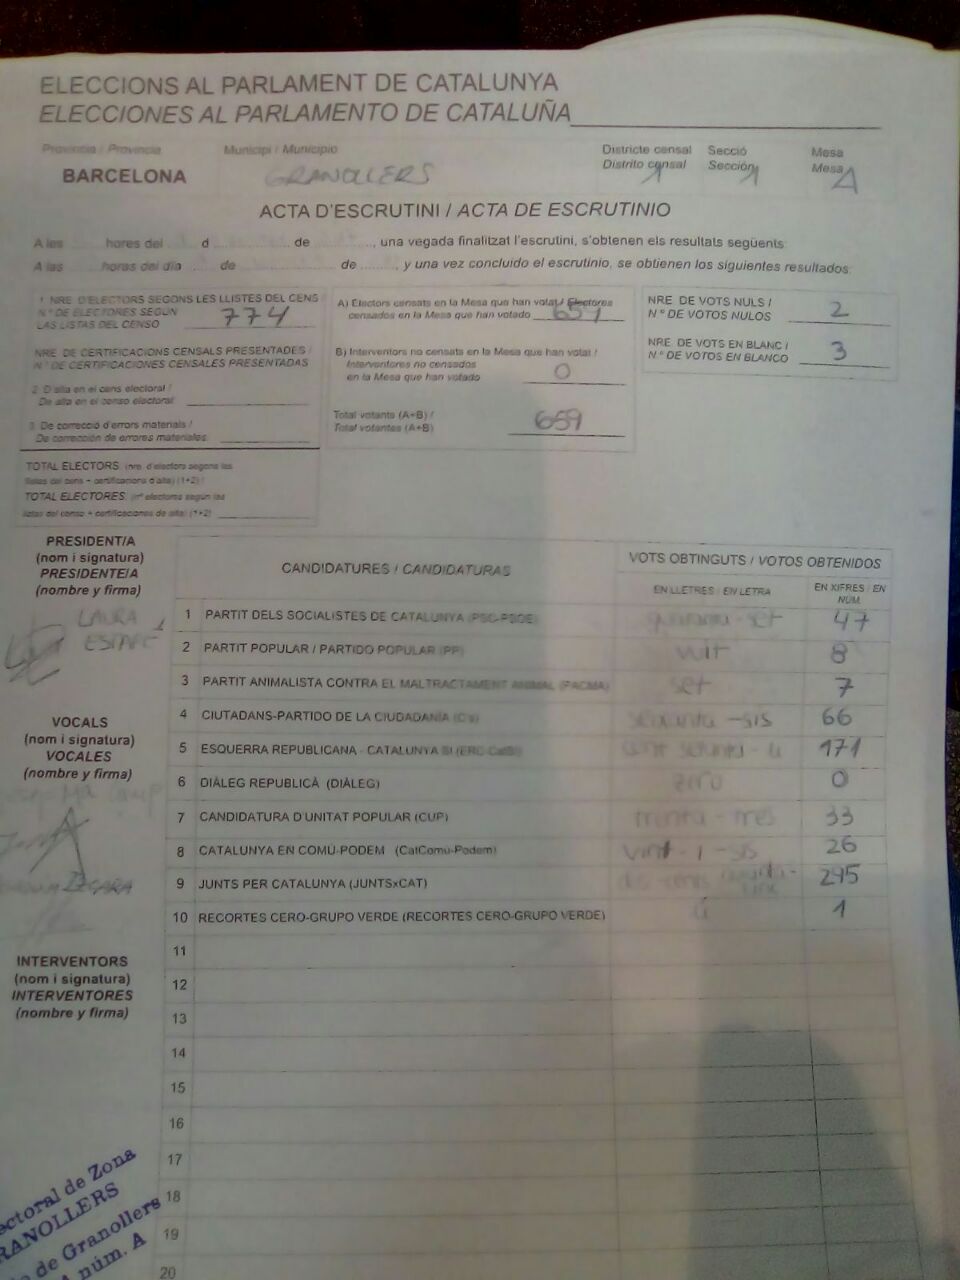 ELECCIONS AL PARLAMENT DE CATALUNYA
ELECCIONES AL PARLAMENTO DE CATALUÑA
Província / Provincia
BARCELONA
Municipi / Municipio
GRANOLLERS
Districte censal
Distrito censal 1
Secció
Sección 1
Mesa
Mesa A
ACTA D'ESCRUTINI / ACTA DE ESCRUTINIO
A les hores del d de , una vegada finalitzat l'escrutini, s'obtenen els resultats següents:
A las horas del día de de , y una vez concluido el escrutinio, se obtienen los siguientes resultados:
1 NRE D'ELECTORS SEGONS LES LLISTES DEL CENS
N.º DE ELECTORES SEGÚN
LAS LISTAS DEL CENSO 774
NRE. DE CERTIFICACIONS CENSALS PRESENTADES /
N.º DE CERTIFICACIONES CENSALES PRESENTADAS
2. D'alta en el cens electoral /
De alta en el censo electoral
3. De correcció d'errors materials /
De corrección de errores materiales
TOTAL ELECTORS: (nre. d'electors segons les
llistes del cens + certificacions d'alta) (1+2) /
TOTAL ELECTORES: (nº electores según las
listas del censo + certificaciones de alta) (1+2)
A) Electors censats en la Mesa que han votat / Electores
censados en la Mesa que han votado 659
B) Interventors no censats en la Mesa que han votat /
Interventores no censados
en la Mesa que han votado 0
Total votants (A+B) /
Total votantes (A+B) 659
NRE. DE VOTS NULS /
N.º DE VOTOS NULOS 2
NRE. DE VOTS EN BLANC /
N.º DE VOTOS EN BLANCO 3
PRESIDENT/A
(nom i signatura)
PRESIDENTE/A
(nombre y firma)
LAURA
VOCALS
(nom i signatura)
VOCALES
(nombre y firma)
INTERVENTORS
(nom i signatura)
INTERVENTORES
(nombre y firma)
CANDIDATURES / CANDIDATURAS
VOTS OBTINGUTS / VOTOS OBTENIDOS
EN LLETRES / EN LETRA
EN XIFRES / EN
NÚM.
1 PARTIT DELS SOCIALISTES DE CATALUNYA (PSC-PSOE) quaranta-set 47
2 PARTIT POPULAR / PARTIDO POPULAR (PP) vuit 8
3 PARTIT ANIMALISTA CONTRA EL MALTRACTAMENT ANIMAL (PACMA) set 7
4 CIUTADANS-PARTIDO DE LA CIUDADANÍA (C's) seixanta-sis 66
5 ESQUERRA REPUBLICANA - CATALUNYA SÍ (ERC-CatSí) cent setanta-u 171
6 DIÀLEG REPUBLICÀ (DIÀLEG) zero 0
7 CANDIDATURA D'UNITAT POPULAR (CUP) trenta-tres 33
8 CATALUNYA EN COMÚ-PODEM (CatComú-Podem) vint-i-sis 26
9 JUNTS PER CATALUNYA (JUNTSxCAT) 295
10 RECORTES CERO-GRUPO VERDE (RECORTES CERO-GRUPO VERDE) u 1
11
12
13
14
15
16
17
18
19
20
ectoral de Zona
RANOLLERS
de Granollers
núm. A